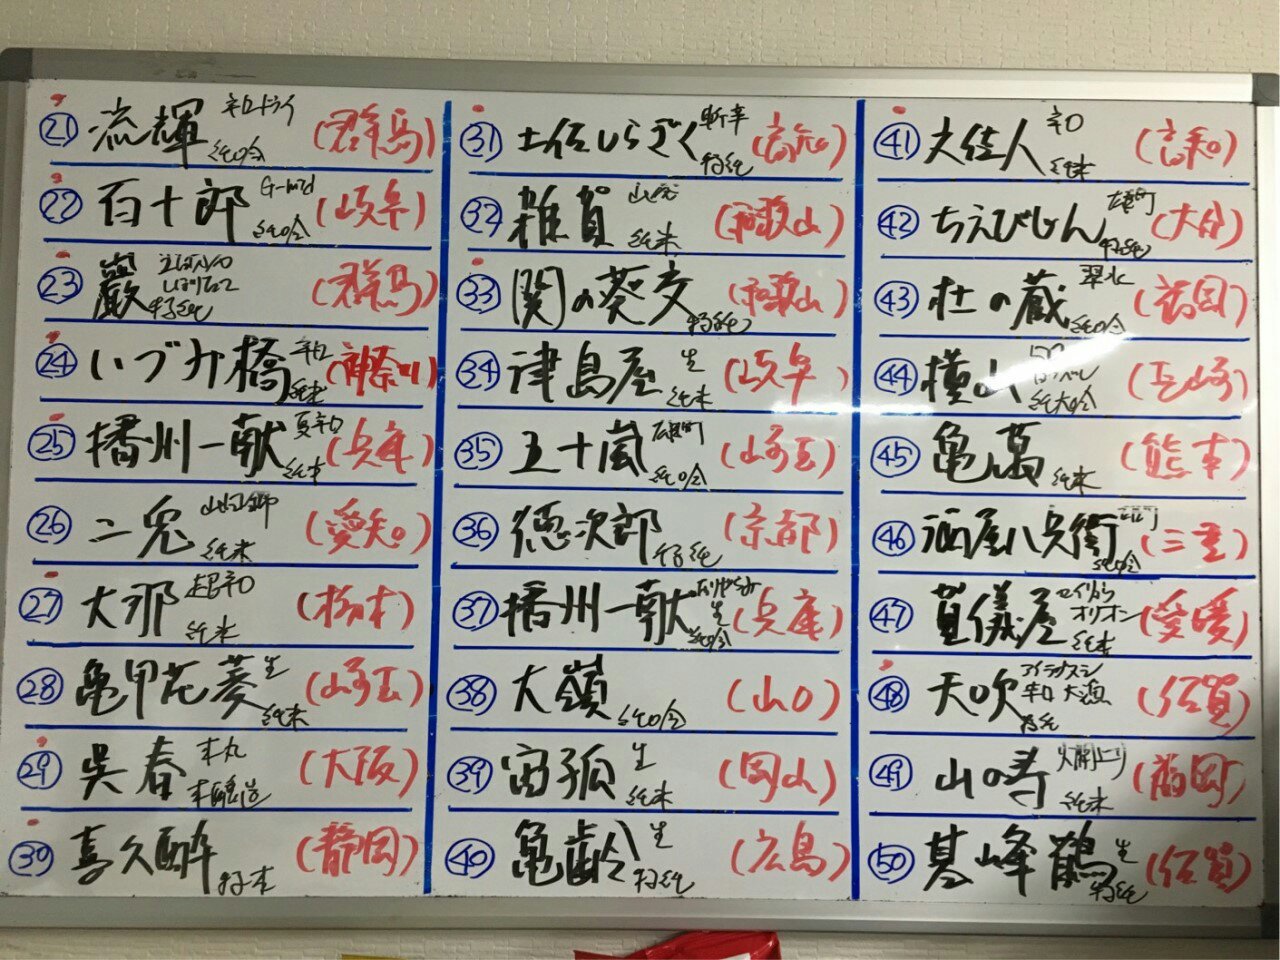 ㉑ 流輝 辛口ドライ 純吟 (群馬)
㉒ 百十郎 G-mid 純吟 (岐阜)
㉓ 巖 しぼりたて 特純 (群馬)
㉔ いづみ橋 辛口 純米 (神奈川)
㉕ 播州一献 夏辛口 純米 (兵庫)
㉖ 二兎 山田錦 純米 (愛知)
㉗ 大那 超辛口 純米 (栃木)
㉘ 亀甲花菱 生 純米 (埼玉)
㉙ 呉春 本丸 本醸造 (大阪)
㉚ 喜久酔 特本 (静岡)
㉛ 土佐しらぎく 斬辛 特純 (高知)
㉜ 雑賀 山廃 純米 (和歌山)
㉝ 関の葵 特純 (和歌山)
㉞ 津島屋 生 純米 (岐阜)
㉟ 五十嵐 雄町 純吟 (埼玉)
㊱ 徳次郎 特純 (京都)
㊲ 播州一献 生 純吟 (兵庫)
㊳ 大嶺 純吟 (山口)
㊴ 宙狐 生 純米 (岡山)
㊵ 亀齢 生 特純 (広島)
㊶ 文佳人 辛口 純米 (高知)
㊷ ちえびじん 雄町 特純 (大分)
㊸ 杜の蔵 翠水 純吟 (福岡)
㊹ 横山 50 純大吟 (長崎)
㊺ 亀萬 純米 (熊本)
㊻ 酒屋八兵衛 純吟 (三重)
㊼ 賀儀屋 セイリョウオリオン 純米 (愛媛)
㊽ 天吹 辛口 大濱 特純 (佐賀)
㊾ 山の寿 純米 (福岡)
㊿ 基峰鶴 生 特純 (佐賀)